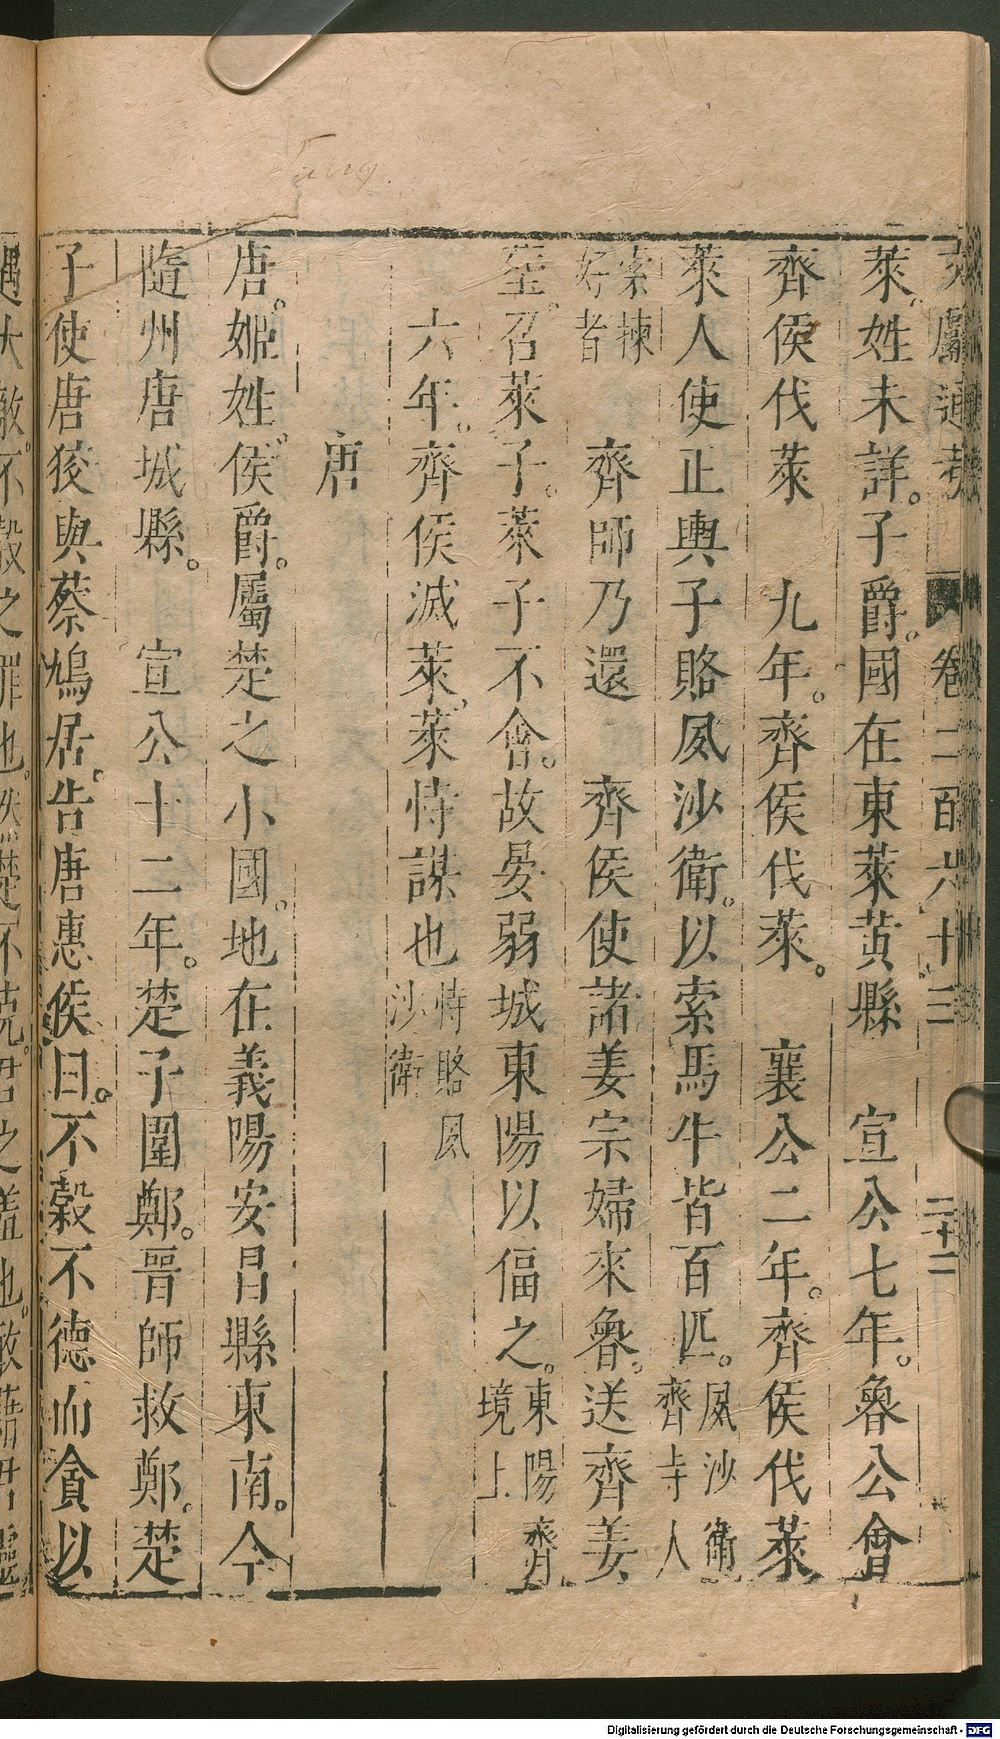 Tang
文獻通考 卷二百六十三 二十二
萊姓未詳。子爵。國在東萊黃縣 宣公七年。魯公會
齊侯伐萊 九年。齊侯伐萊。 襄公二年。齊侯伐萊
萊人使正輿子賂夙沙衛。以索馬牛皆百匹。夙沙衛齊寺人
索揀好者 齊師乃還 齊侯使諸姜宗婦來魯。送齊姜
召萊子。萊子不會。故晏弱城東陽以偪之。東陽齊境上
六年。齊侯滅萊。萊恃謀也恃賂夙沙衛
唐
唐。姬姓。侯爵。屬楚之小國。地在義陽安昌縣東南。今
隨州唐城縣。 宣公十二年。楚子圍鄭。晉師救鄭。楚
子使唐狡與蔡鳩居。告唐惠侯曰。不穀不德而貪以
遇大敵。不穀之罪也。然楚不克。君之羞也。敢藉君靈
Digitalisierung gefördert durch die Deutsche Forschungsgemeinschaft - DFG